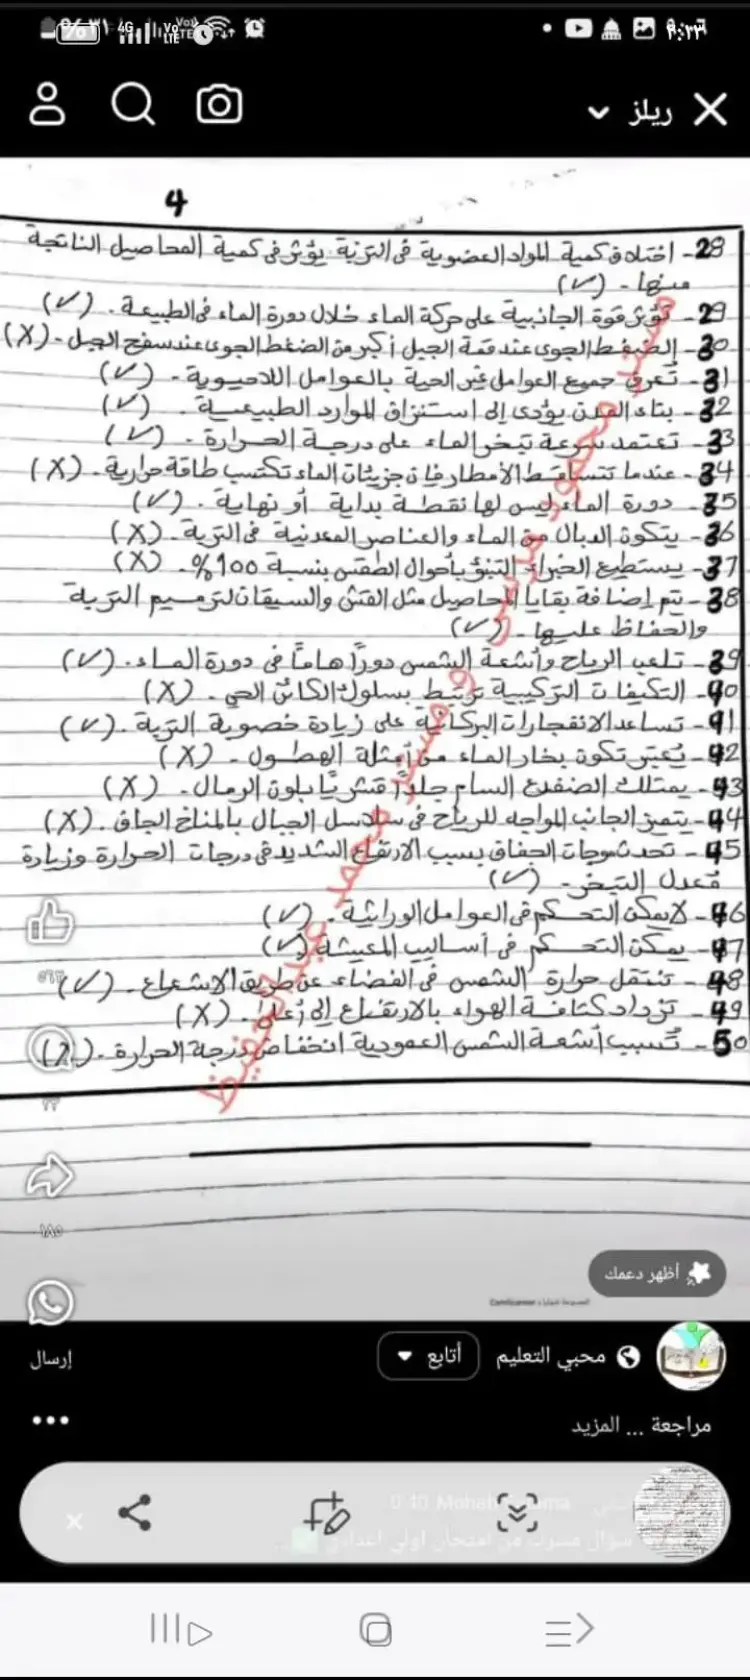 ٩:٢٣
4G
ريلز
4
28- اختلاف كمية المواد العضوية فى التربة يؤثر فى كمية المحاصيل الناتجة
منها - (✓)
29- تؤثر قوة الجاذبية على حركة الماء خلال دورة الماء فى الطبيعة. (✓)
30- الضغط الجوى عند قمة الجبل أكبر من الضغط الجوى عند سفح الجبل - (X)
31- تعرف جميع العوامل غير الحية بالعوامل اللاحيوية - (✓)
32- بناء المدن يؤدى إلى استنزاف الموارد الطبيعية - (✓)
33- تعتمد سرعة تبخر الماء على درجة الحرارة - (✓)
34- عندما تتساقط الأمطار فإن جزيئات الماء تكتسب طاقة حرارية - (X)
35- دورة الماء ليس لها نقطة بداية أو نهاية. (✓)
36- يتكون الدبال من الماء والعناصر المعدنية فى التربة - (X)
37- يستطيع الخبراء التنبؤ بأحوال الطقس بنسبة 100% - (X)
38- يتم إضافة بقايا المحاصيل مثل القش والسيقان لترميم التربة
والحفاظ عليها - (✓)
39- تلعب الرياح وأشعة الشمس دورًا هامًا فى دورة الماء. (✓)
40- التكيفات التركيبية ترتبط بسلوك الكائن الحي - (X)
41- تساعد الانفجارات البركانية على زيادة خصوبة التربة - (✓)
42- يُعتبر تكون بخار الماء من أمثلة الهطول - (X)
43- يمتلك الضفدع السام جلدًا قشريًا بلون الرمال - (X)
44- يتميز الجانب المواجه للرياح فى سلاسل الجبال بالمناخ الجاف. (X)
45- تحدث موجات الجفاف بسبب الارتفاع الشديد فى درجات الحرارة وزيادة
معدل التبخر - (✓)
46- لا يمكن التحكم فى العوامل الوراثية - (✓)
47- يمكن التحكم فى أساليب المعيشة (✓)
48- تنتقل حرارة الشمس فى الفضاء عن طريق الإشعاع - (✓)
49- تزداد كثافة الهواء بالارتفاع إلى أعلى. (X)
50- تسبب أشعة الشمس العمودية انخفاض درجة الحرارة - (X)
مستر محمود مرسى و مستر محمد عبدالحفيظ
٢٣
١٨٥
أظهر دعمك
CamScanner
محبي التعليم
أتابع
إرسال
مراجعة ... المزيد
0:10